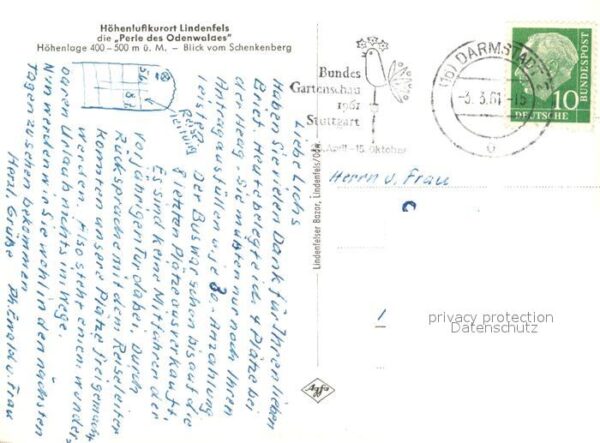 Höhenluftkurort Lindenfels
die „Perle des Odenwaldes"
Höhenlage 400–500 m ü. M. – Blick vom Schenkenberg
Bundes
Gartenschau
1961
Stuttgart
April – 15. Oktober
(16) DARMSTADT 2
-3.3.61.-15
DEUTSCHE
BUNDESPOST
10
Liebe Lichs
Haben Sie vielen Dank für Ihren lieben
Brief. Heute belegte ich 4 Plätze bei
der Hapag - Sie müßten nur noch Ihren
Antrag ausfüllen u. je 30,- Anzahlung
leisten.
Der Bus war schon bis auf die
8 letzten Plätze ausverkauft.
Es sind keine Mitfahrer der
vorjährigen Tour dabei. Durch
Rücksprache mit dem Reiseleiter
konnten unsere Plätze freigemacht
werden. Also steht einem wunder
baren Urlaub nichts im Wege.
Nun werden wir Sie wohl in den nächsten
Tagen zu sehen bekommen
Herzl. Grüße Ph. Ewald u. Frau
Reise
leitung
5/6
7 8
Herrn u. Frau
Lindenfelser Bazar, Lindenfels/Odw.
privacy protection
Datenschutz